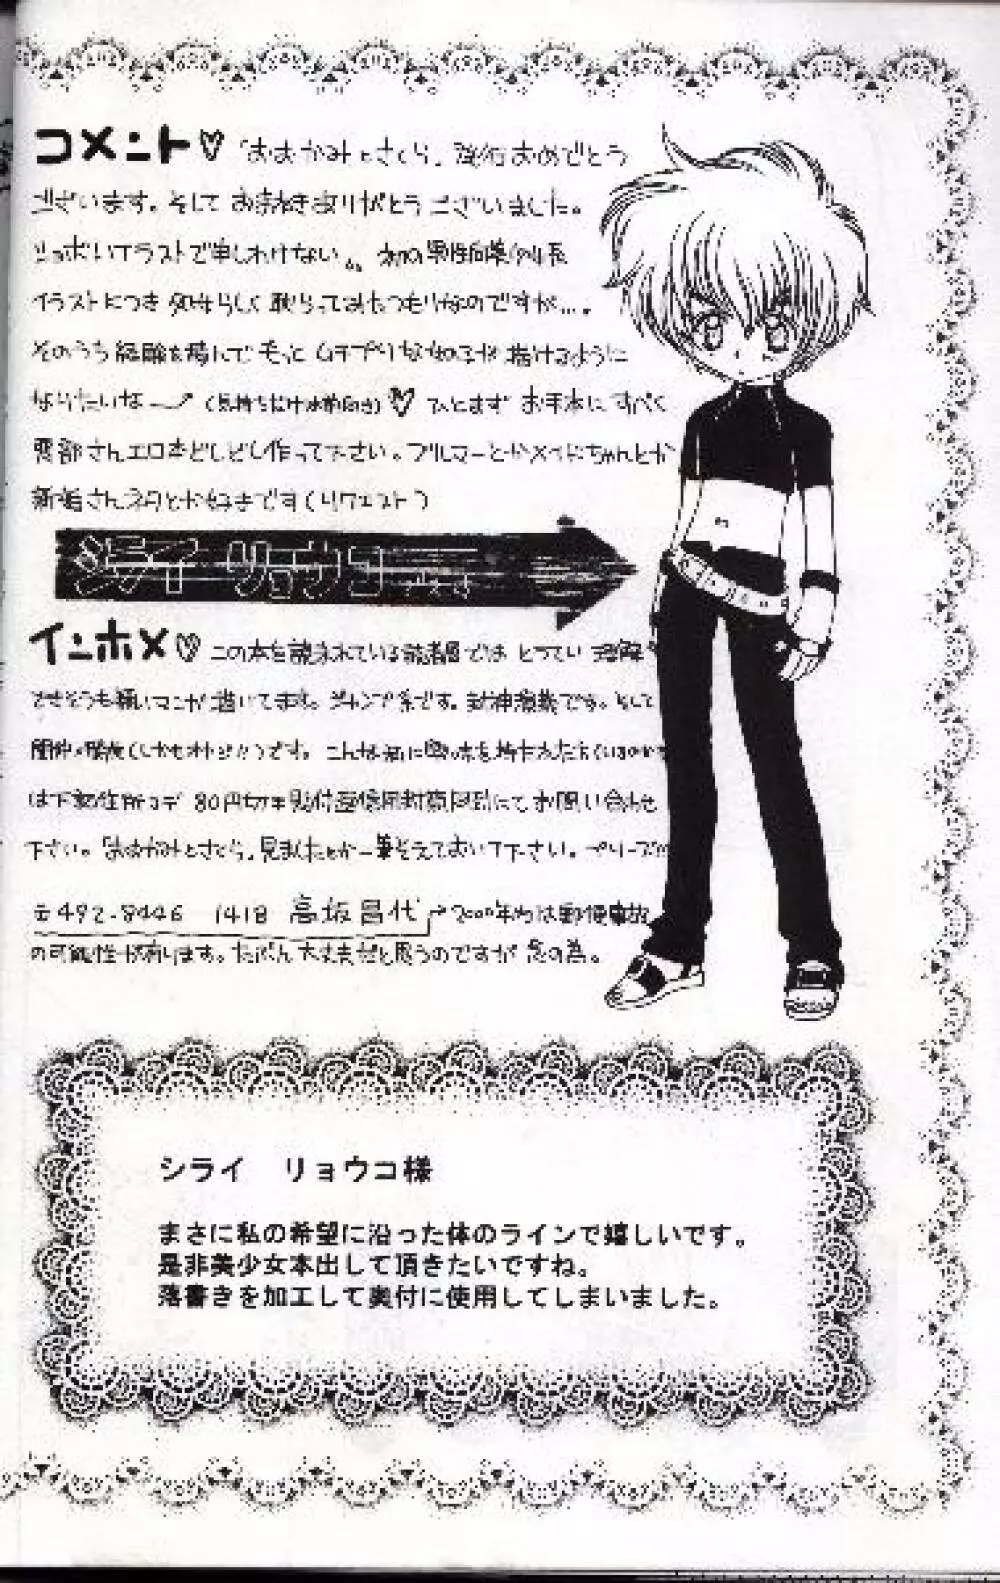 コメント♡「おおかみとさくら」発行おめでとう
ございます。そして お招きありがとうございました。
イラストで申しわけない。
イラストにつき なのですが…。
そのうち経験を積んで もっと ムチプリな女の子が描けるように
なりたいな (気持ちだけは前向き)♡ ひとまず お手本にすべく
さんエロ本どしどし作って下さい。ブルマーとかメイドちゃんとか
新婚さんネタとか好きです(リクエスト)
シライ リョウコ
インホメ♡ この本を読まれている読者層では とうてい 理解
できそうも無いマンガ描いてます。ジャンプ系です。封神演義です。そして
です。こんな私に興味を持たれた
は下記住所まで 80円切手貼付返信用封筒同封にてお問い合わせ
下さい。「おおかみとさくら」見ましたとか一筆そえておいて下さい。
〒492-8446 1418 高坂昌代 2000年内は郵便事故
の可能性が有ります。たぶん大丈夫だと思うのですが 念の為。
シライ　リョウコ様
まさに私の希望に沿った体のラインで嬉しいです。
是非美少女本出して頂きたいですね。
落書きを加工して奥付に使用してしまいました。